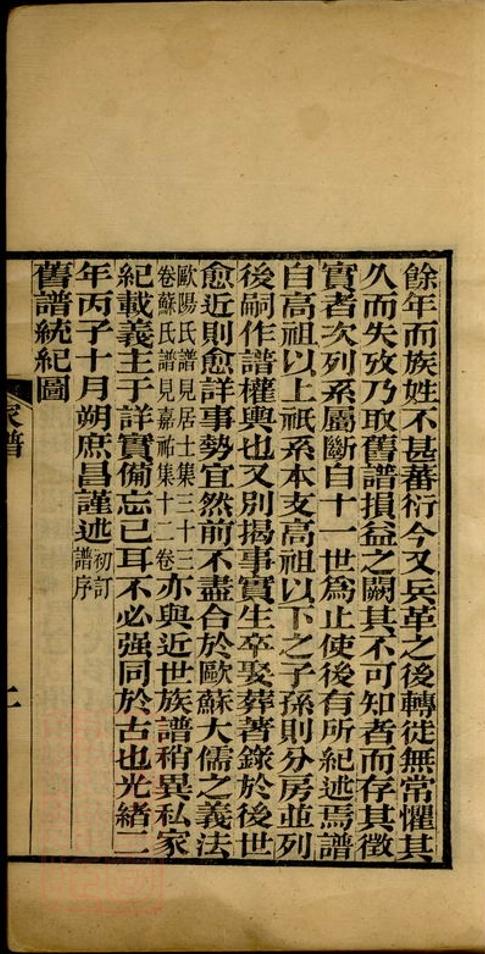 餘年而族姓不甚蕃衍今又兵革之後轉徙無常懼其
久而失攷乃取舊譜損益之闕其不可知者而存其徵
實者次列系屬斷自十一世爲止使後有所紀述焉譜
自高祖以上祇系本支高祖以下之子孫則分房並列
後嗣作譜權輿也又別揭事實生卒娶葬著錄於後世
愈近則愈詳事勢宜然前不盡合於歐蘇大儒之義法
歐陽氏譜見居士集三十三
卷蘇氏譜見嘉祐集十二卷亦與近世族譜稍異私家
紀載義主于詳實備忘已耳不必强同於古也光緒二
年丙子十月朔庶昌謹述初訂
譜序
舊譜統紀圖
家譜
二